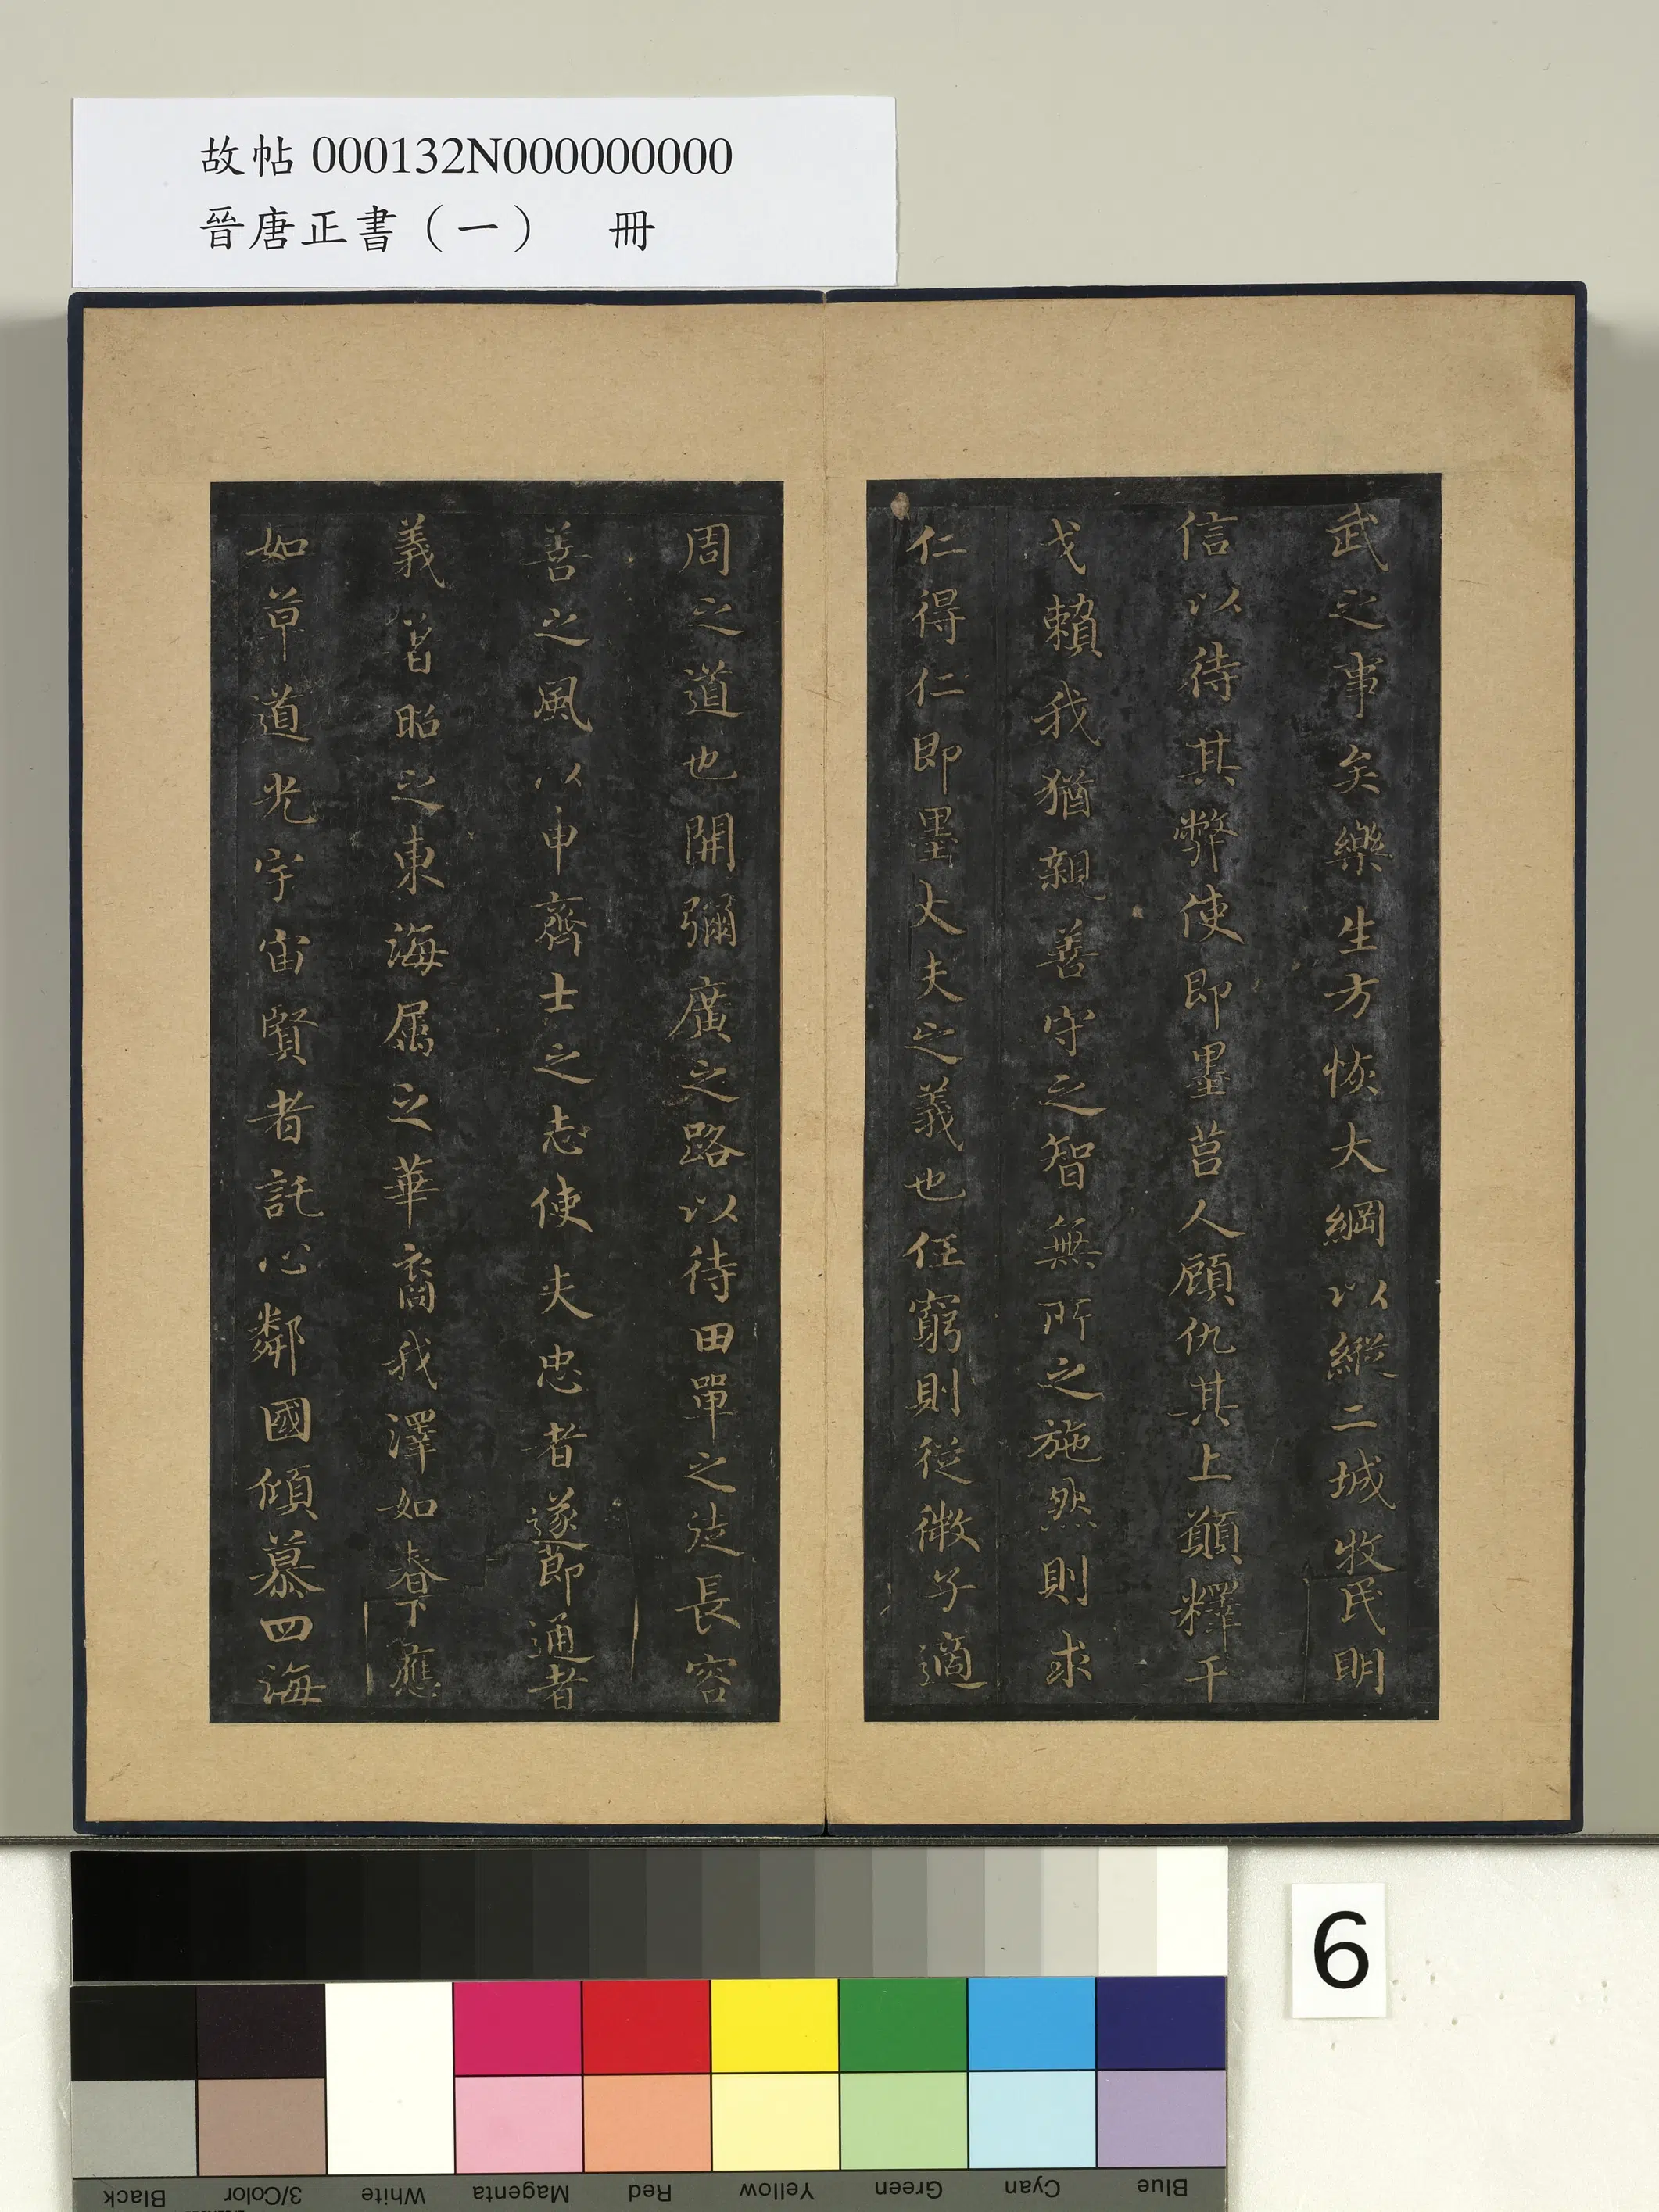 故帖 000132N000000000
晉唐正書（一）　冊
武之事矣樂生方恢大綱以縱二城牧民明
信以待其弊使即墨莒人顧仇其上願釋干
戈賴我猶親善守之智無所之施然則求
仁得仁即墨大夫之義也任窮則從微子適
周之道也開彌廣之路以待田單之徒長容
善之風以申齊士之志使夫忠者遂節通者
義著昭之東海属之華裔我澤如春下應
如草道光宇宙賢者託心鄰國傾慕四海
6
Black
3/Color
White
Magenta
Red
Yellow
Green
Cyan
Blue